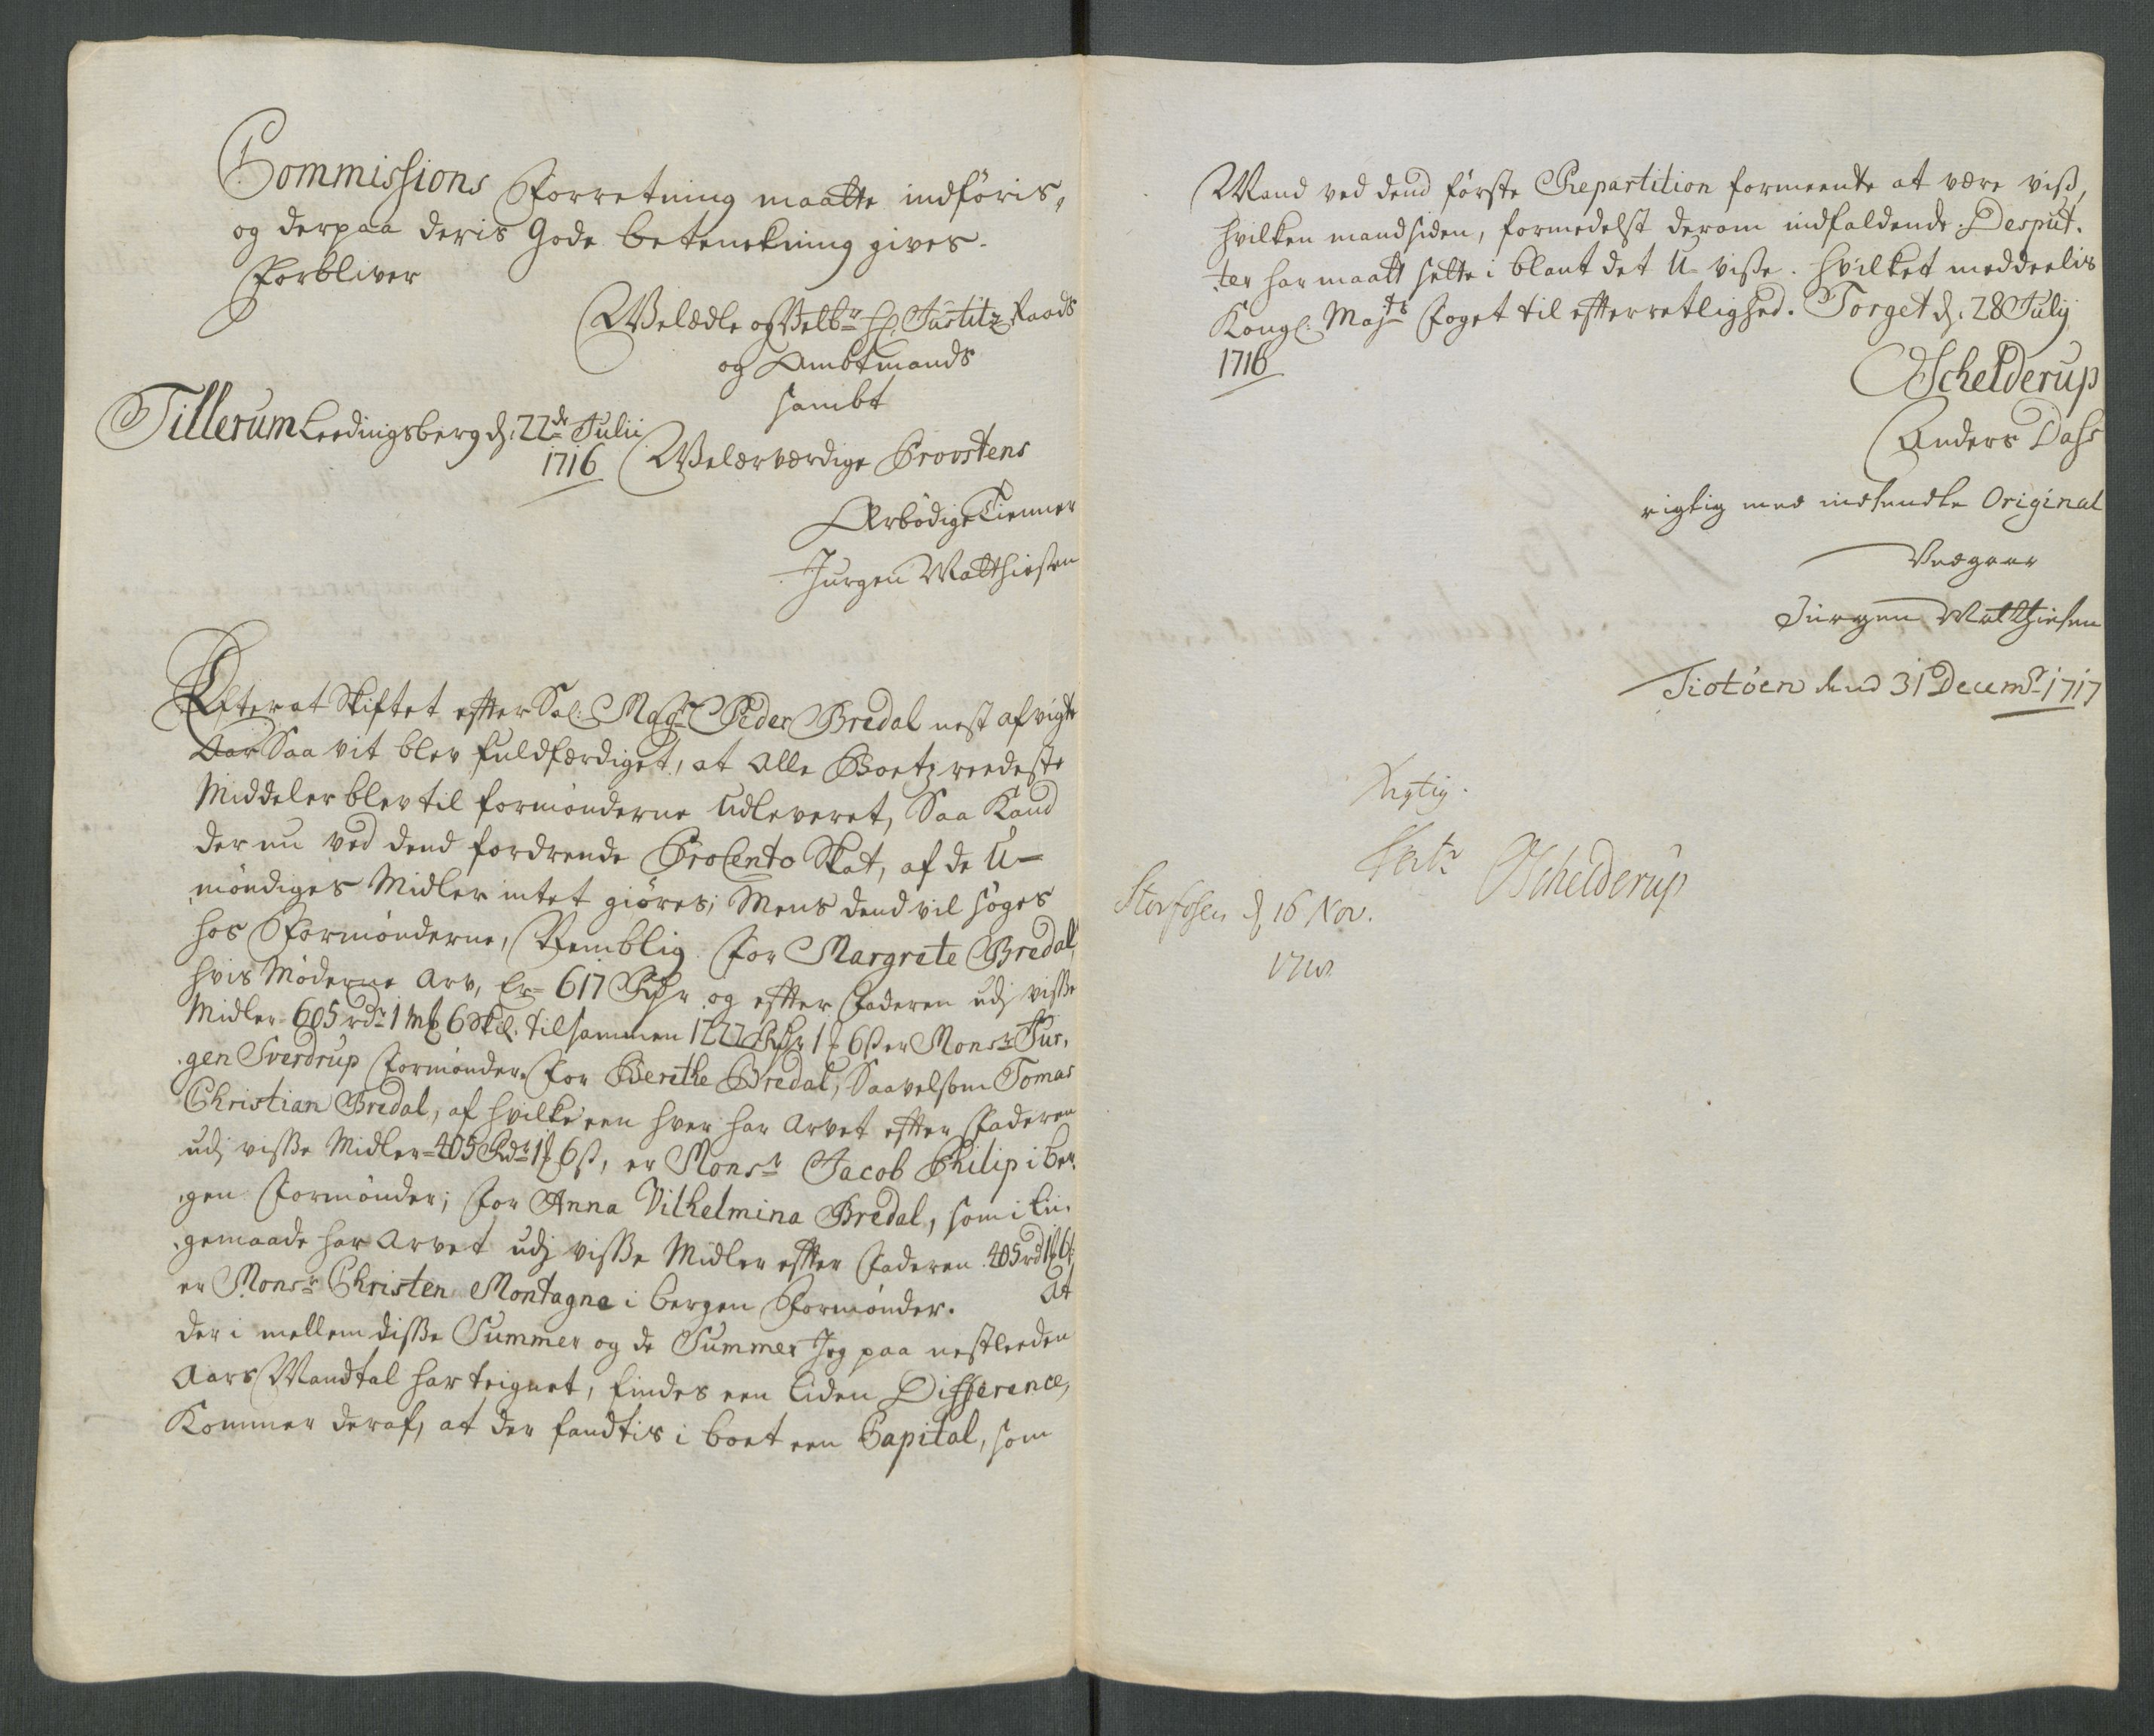 Commissions Forretning maatte indføris,
og derpaa deris Gode betenckning gives.
Forbliver
Welædle og Welb:r H: Justitz Raads
og Ambtmands
sambt
Tillerum Leedingsberg d: 22de Julii
1716 Welærværdige Provstens
Ærbødige Tienner
Jurgen Matthiesen
Efter at Skiftet effter Sal: Mag:r Peder Bredal nest afvigte
Aar Saa vit blev fuldfærdiget, at Alle Boetz reedeste
Middeler blev til formønderne Udleveret, Saa Kand
der nu ved dend fordrende ProCento Skat, af de U-
møndiges Midler intet giøres; Mens dend vil søges
hos Formønderne, Nemblig for Margrete Bredal,
hvis Møderne Arv, Er= 617 Rdr og effter Faderen udj visse
Midler 605 rdr 1 mk 6 Skil: tilsammen 1222 Rdr 1 6 s er Monsr Jur,
,gen Sverdrup Formønder. For Berethe Bredal, Saavelsom Tomas
Christian Bredal, af hvilke een hver har Arvet effter Faderen
udj visse Midler= 405 Rdr 1 6 s, er Monsr Jacob Philip i Ber,
,gen Formønder; for Anna Vilhelmina Bredal, som i Lii,
,gemaade har Arvet udj visse Midler effter Faderen 405 rd 1 6
er Monsr Christen Montagne i Bergen Formønder. At
der i mellem disse Summer og de Summer Jeg paa nestleeden
Aars Mandtal har teignet, findes een liden Difference,
Kommer deraf, at der fandtis i boet een Capital, som
Mand ved dend første Repartition formeente at være viss,
hvilken mand siden, formedelst derom indfaldende Desput,
,ter har maatt sette i blant det U-visse. hvilket meddeelis
Kongl: Majts Foget til effterretlighed. Torget d: 28 Julij
1716
Schelderup
Anders Dass
rigtig med indsendte Original
Vedgaar
Jürgen Matthiesen
Tiotøen dend 31 Decembr 1717
Rigtig.
Schelderup
Storfosen d 16 Nov.